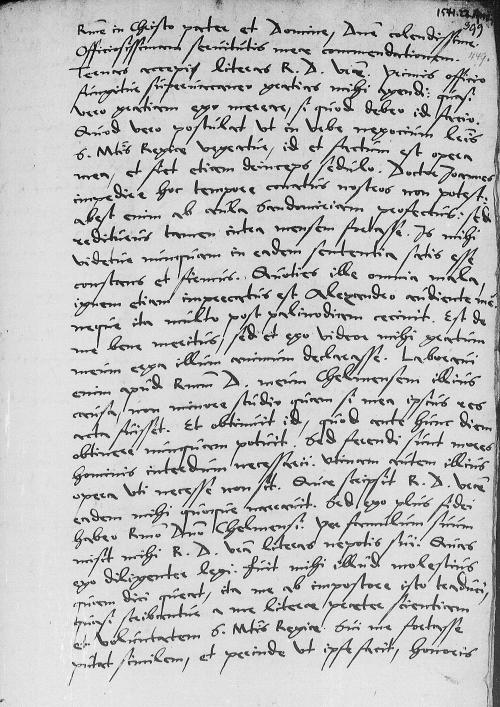 Rme in Christo pater et Domine, Dne colendissime
Officiosissimam servitutis meae commendationem.
accepi literas R. D. Vrae. Primus officio
supervacaneo gratias mihi agendi: quasi
vero gratiam ego merear, si quod debeo id facio.
Quod vero postulat ut in Urbe negocium
S. Mtis Regiae urgeatur, id et factum est opera
mea, et fiet etiam deinceps sedulo. Doctor Joannes
impedire hoc tempore conatus nostros non potest:
abest enim ab aula Sandomiriam profectus: sed
rediturus tamen intra mensem fortasse. Is mihi
videtur nunquam in eadem sententia satis esse
constans et firmus. Quoties ille omnia mala,
ignem etiam imprecatus est Alexandro audiente me
neque ita multo post palinodiam cecinit. Est de
me bene meritus, sed et ego videor mihi gratum
meum erga illum animum declarasse. Laboravi
enim apud Rmum D. meum Chelmensem illius
causa, non minore studio quam si mea ipsius res
acta fuisset. Et obtinuit id, quod ante hunc diem
obtinere nunquam potuit. Sed ferendi sunt mores
hominis interdum necessarii. Utinam autem illius
opera uti necesse non sit. Quae scripsit R. D. Vrae
eadem mihi quoque narravit. Sed ego plus fidei
habeo Rmo Dno Chelmensi. Per famulum suum
misit mihi R. D. Vra literas nepotis sui. Quas
ego diligenter legi. Fuit mihi illud molestius
quam dici queat, ita me ab impostore isto traduci,
quasi scribantur a me literae praeter scientiam
et voluntatem S. Mtis Regiae. Sui me fortasse
putat similem, et perinde ut ipse facit, honoris